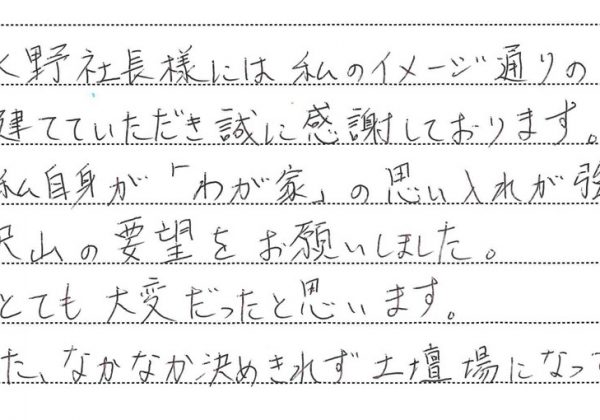 野社長様には私のイメージ通りの
建てていただき誠に感謝しております。
私自身が「わが家」の思い入れが強
沢山の要望をお願いしました。
とても大変だったと思います。
た、なかなか決めきれず土壇場になって